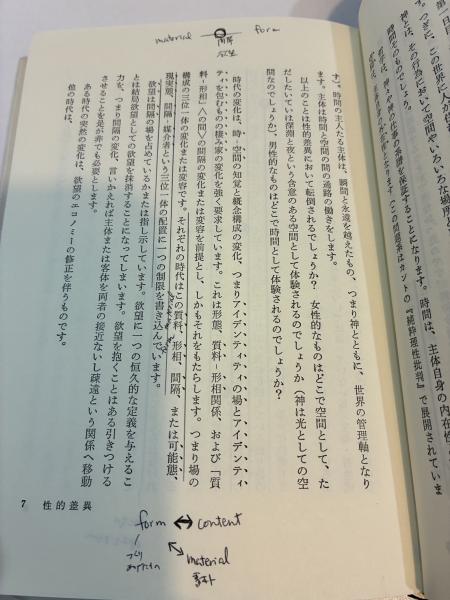 material form
間隔
す)。時間の主人たる主体は、瞬間と永遠を越えたもの、つまり神とともに、世界の管理軸となり
ます。主体は時間と空間の間の通路の働きをします。
以上のことは性的差異において転倒されるでしょうか? 女性的なものはどこで空間として、た
だしたいていは深淵と夜という含意のある空間として体験されるのでしょうか(神は光としての空
間なのでしょうか)、男性的なものはどこで時間として体験されるのでしょうか?
時代の変化は、時-空間の知覚と概念構成の変化、つまりアイデンティティの場とアイデンティ
ティを包むものの棲み家の変化を強く要求しています。これは形態、質料-形相関係、および「質
料-形相」〈の間〉の間隔の変化または変容を前提とし、しかもそれをもたらします。つまり場の
構成の三位一体の変化または変容です。それぞれの時代はこの質料、形相、間隔、または可能態、
現実態、間隔-媒介者という三位一体の配置に一つの制限を書き込んでいます。
欲望は間隔の場を占めているかまたは指し示しています。欲望に一つの恒久的な定義を与えるこ
とは結局欲望としての欲望を抹消することになってしまいます。欲望を抱くことはある引きつける
力を、つまり間隔の変化、言いかえれば主体または客体を両者の接近ないし疎遠という関係へ移動
させることを是が非でも必要とします。
ある時代の突然の変化は、欲望のエコノミーの修正を伴うものです。
他の時代は、
7 性的差異
form ↔ content
material
素材